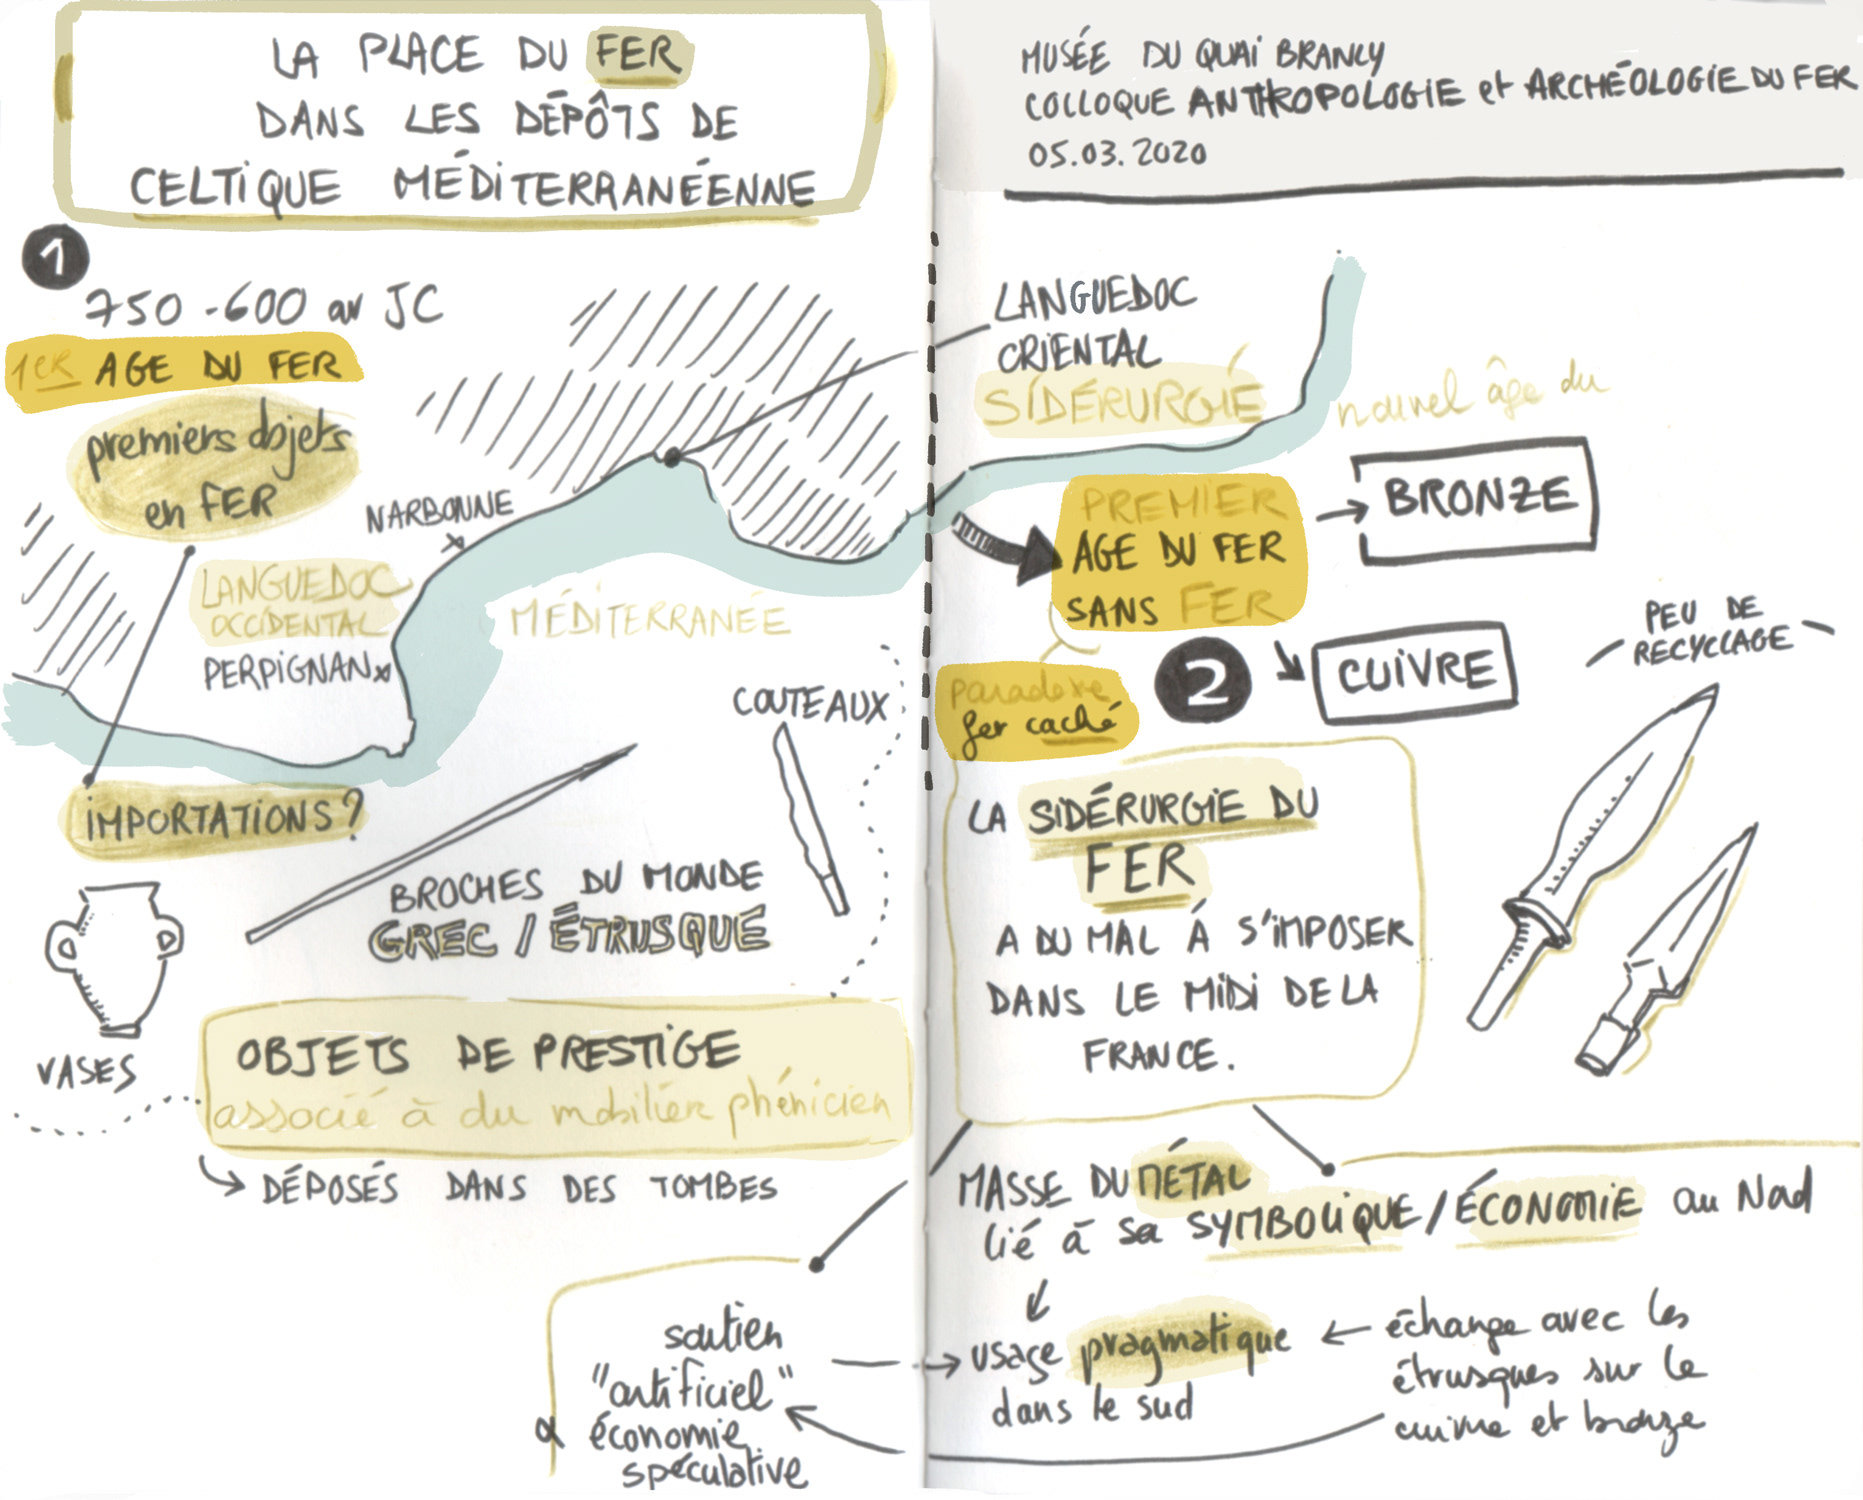 LA PLACE DU FER
DANS LES DÉPÔTS DE
CELTIQUE MÉDITERRANÉENNE
MUSÉE DU QUAI BRANLY
COLLOQUE ANTHROPOLOGIE et ARCHÉOLOGIE DU FER
05.03.2020
1
750 - 600 av JC
1ER AGE DU FER
premiers objets
en FER
NARBONNE
LANGUEDOC
OCCIDENTAL
PERPIGNAN
MÉDITERRANÉE
IMPORTATIONS?
COUTEAUX
BROCHES DU MONDE
GREC / ÉTRUSQUE
VASES
OBJETS DE PRESTIGE
associé à du mobilier phénicien
DÉPOSÉS DANS DES TOMBES
soutien
"artificiel"
économie
spéculative
LANGUEDOC
ORIENTAL
SIDÉRURGIE
nouvel âge du
BRONZE
PREMIER
AGE DU FER
SANS FER
2
CUIVRE
PEU DE
RECYCLAGE
paradoxe
fer caché
LA SIDÉRURGIE DU
FER
A DU MAL À S'IMPOSER
DANS LE MIDI DE LA
FRANCE.
MASSE DU MÉTAL
lié à sa SYMBOLIQUE / ÉCONOMIE au Nord
usage pragmatique
dans le sud
échange avec les
étrusques sur le
cuivre et bronze